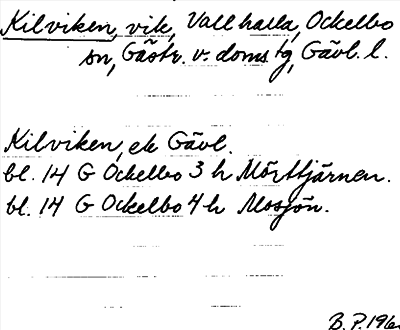 Kilviken, vik, Vallhalla, Ockelbo
sn, Gästr. v. doms tg, Gävl. l.
Kilviken, ek Gävl.
bl. 14 G Ockelbo 3 h Mörttjärnen.
bl. 14 G Ockelbo 4 h Mosjön.
B.P. 196